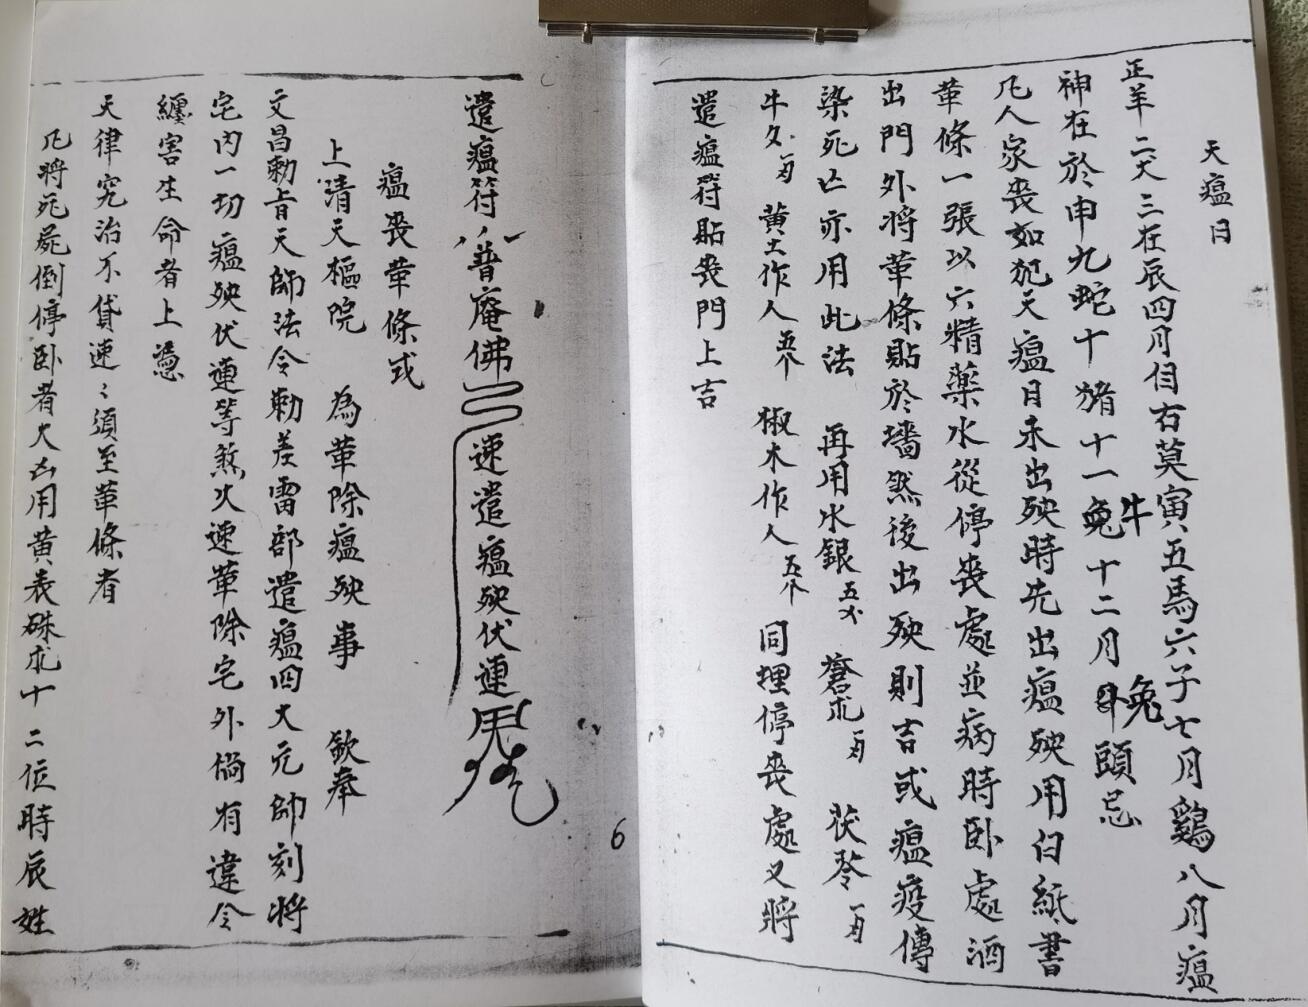 天瘟日
正羊二犬三在辰四月但右莫寅五馬六子七月鷄八月瘟
神在於申九蛇十猪十一兔牛十二月兔頭忌
凡人家喪如犯天瘟日未出殃時先出瘟殃用白紙書
革條一張以六精藥水從停喪處並病時卧處洒
出門外将革條貼於墻然後出殃則吉或瘟疫傳
染死亡亦用此法 再用水銀五分 蒼朮一两 茯苓一两
牛欠一两 黄土作人五个 椒木作人五个 同埋停喪處又將
遣瘟符貼喪門上吉
遣瘟符 普庵佛 速遣瘟殃伏連
瘟喪革條式
上清天樞院 為革除瘟殃事 欽奉
文昌勅旨天師法令勅差雷部遣瘟四大元帥刻將
宅內一切瘟殃伏連等煞火速革除宅外倘有違令
纏害生命者上憑
天律究治不貸速〻須至革條者
凡將死屍倒停卧者大凶用黄表硃朮十二位時辰姓
6